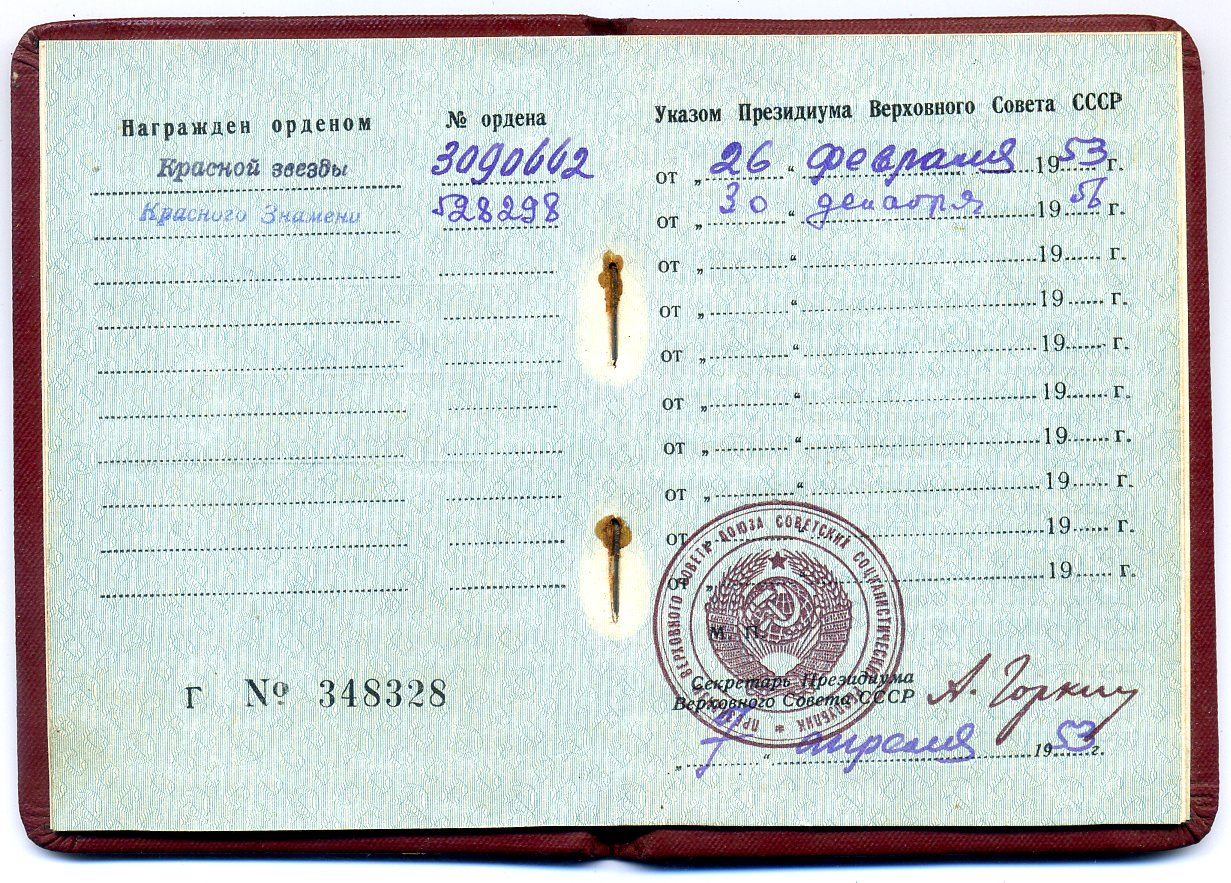 Награжден орденом № ордена
Красной звезды 3090662
Красного Знамени 528298
Г № 348328
Указом Президиума Верховного Совета СССР
от „ 26 “ февраля 1953 г.
от „ 30 “ декабря 1956 г.
от „ “ 19 г.
от „ “ 19 г.
от „ “ 19 г.
от „ “ 19 г.
от „ “ 19 г.
от „ “ 19 г.
от „ “ 19 г.
от „ “ 19 г.
ПРЕЗИДИУМ ВЕРХОВНОГО СОВЕТА СОЮЗА СОВЕТСКИХ СОЦИАЛИСТИЧЕСКИХ РЕСПУБЛИК
М. П.
Секретарь Президиума
Верховного Совета СССР А. Горкин
„ 7 “ апреля 1953 г.